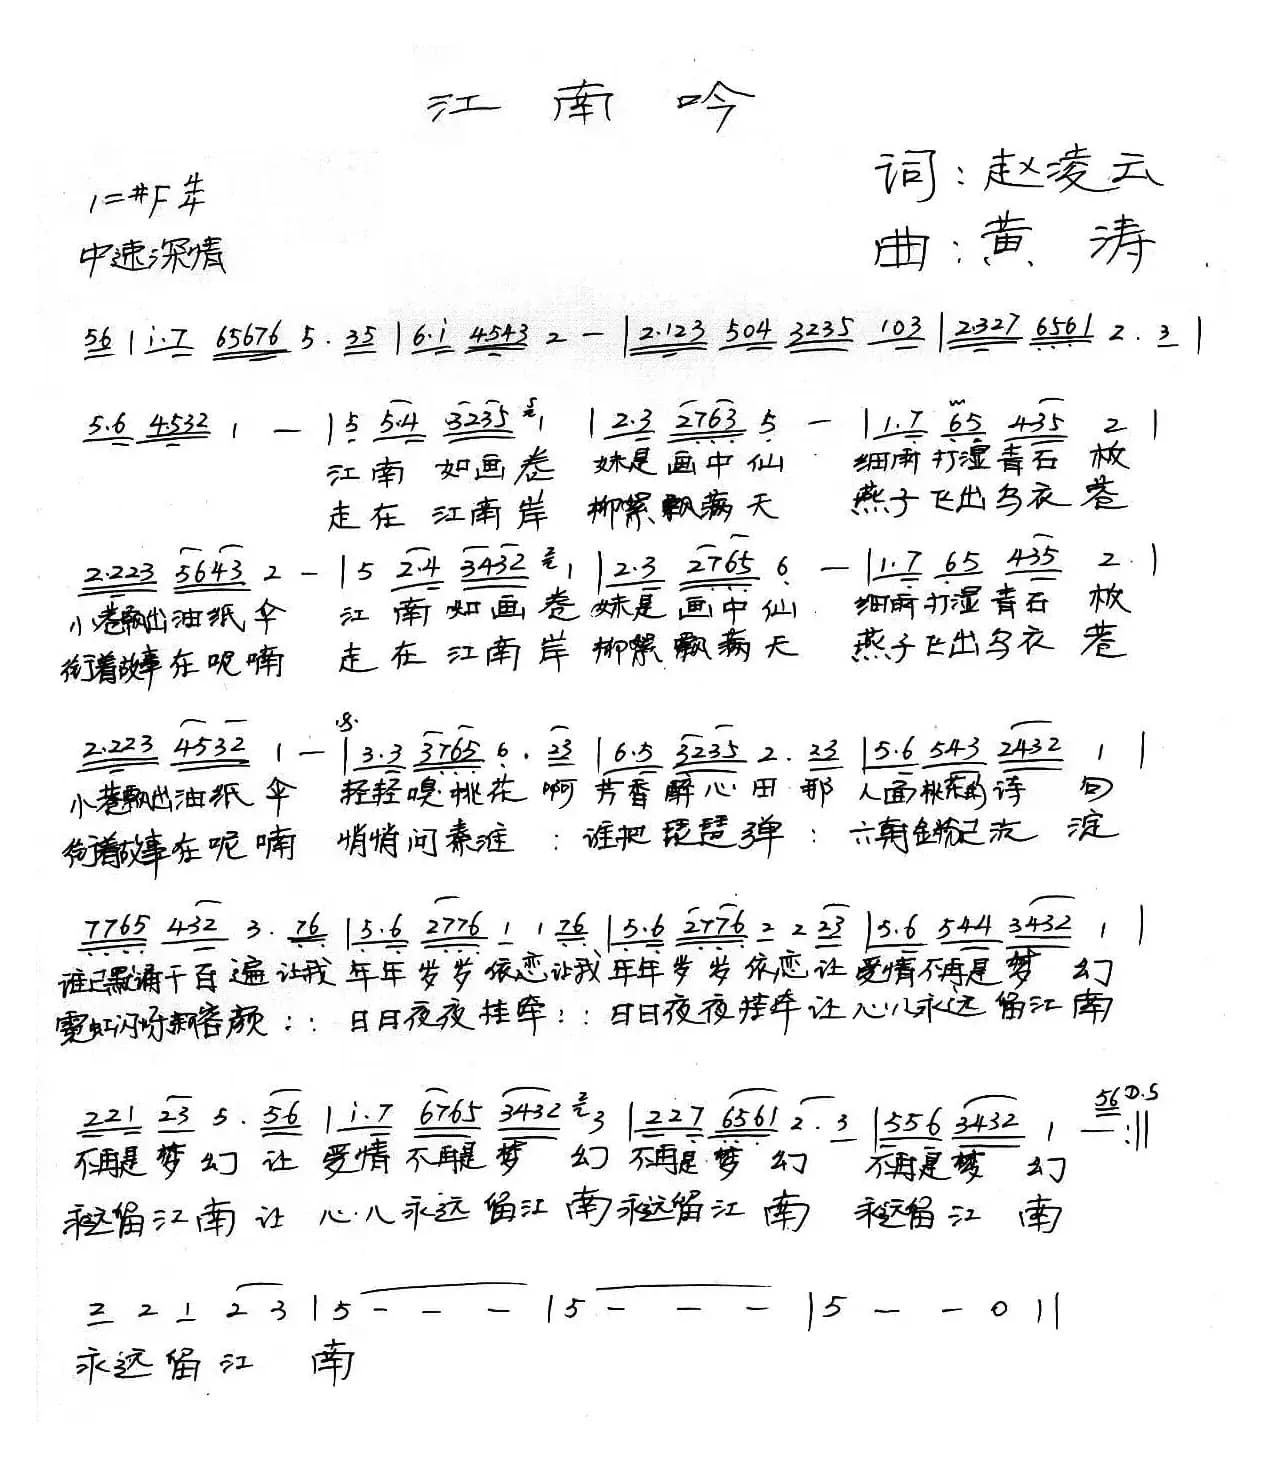 江南吟
词：赵凌云
1=#F 4/4
曲：黄涛
中速深情
56 | i.7 65676 5. 35 | 6.i 4543 2 — | 2.123 504 3235 103 | 2.327 6561 2. 3 |
5.6 4532 1 — | 5 5.4 3235 5 1 | 2.3 2763 5 — | 1.7 65 435 2 |
江南 如画卷 妹是画中仙 细雨打湿青石板
走在江南岸 柳絮飘满天 燕子飞出乌衣巷
2.223 5643 2 — | 5 2.4 3432 2 1 | 2.3 2765 6 — | 1.7 65 435 2. |
小巷飘出油纸伞 江南如画卷 妹是画中仙 细雨打湿青石板
衔着故事在呢喃 走在江南岸 柳絮飘满天 燕子飞出乌衣巷
2.223 4532 1 — | 3.3 3765 6. 23 | 6.5 3235 2. 23 | 5.6 543 2432 1 |
小巷飘出油纸伞 轻轻嗅桃花 啊 芳香醉心田 那 人面桃花的诗句
衔着故事在呢喃 悄悄问秦淮 : 谁把琵琶弹 : 六朝金粉已沉淀
7765 432 3. 76 | 5.6 2776 1 1 76 | 5.6 2776 2 2 23 | 5.6 544 3432 1 |
谁已默诵千百遍 让我年年岁岁依恋 让我年年岁岁依恋 让爱情不再是梦幻
霓虹闪烁新容颜 : : 日日夜夜挂牵 : : 日日夜夜挂牵 让心儿永远留江南
221 23 5. 56 | i.7 6765 3432 2 3 | 227 6561 2. 3 | 556 3432 1 — :|| 56 D.S
不再是梦幻 让爱情不再是梦幻 不再是梦幻 不再是梦幻
永远留江南 让心儿永远留江南 永远留江南 永远留江南
2 2 1 2 3 | 5 — — — | 5 — — — | 5 — — 0 ||
永远留江南